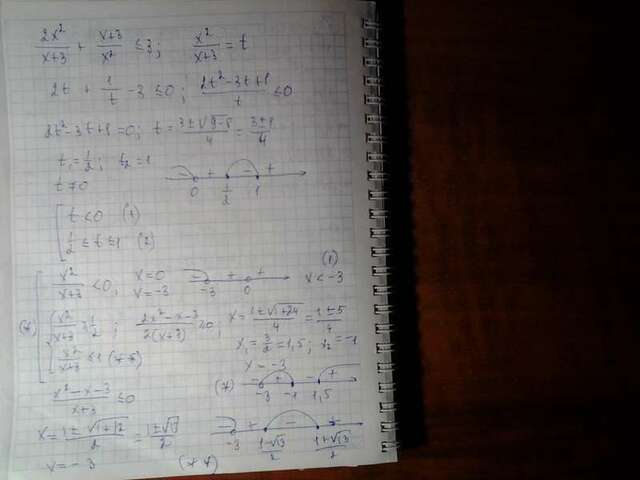 2x²/(x+3) + (x+3)/x² ≤ 3; x²/(x+3) = t
2t + 1/t - 3 ≤ 0; (2t²-3t+1)/t ≤ 0
2t²-3t+1=0; t = (3±√(9-8))/4 = (3±1)/4
t₁ = 1/2; t₂ = 1
t ≠ 0
- + - +
0 1/2 1
[ t < 0 (1)
1/2 ≤ t ≤ 1 (2)
(1)
x²/(x+3) < 0; x=0 x=-3
- + +
-3 0
x < -3
(*) { x²/(x+3) ≥ 1/2; (2x²-x-3)/(2(x+3)) ≥ 0; x = (1±√(1+24))/4 = (1±5)/4
x₁ = 3/2 = 1,5; x₂ = -1
x²/(x+3) ≤ 1 (**)
x = -3
(*) - + - +
-3 -1 1,5
(x²-x-3)/(x+3) ≤ 0
x = (1±√(1+12))/2 = (1±√13)/2
- + - +
-3 (1-√13)/2 (1+√13)/2
x = -3 (**)